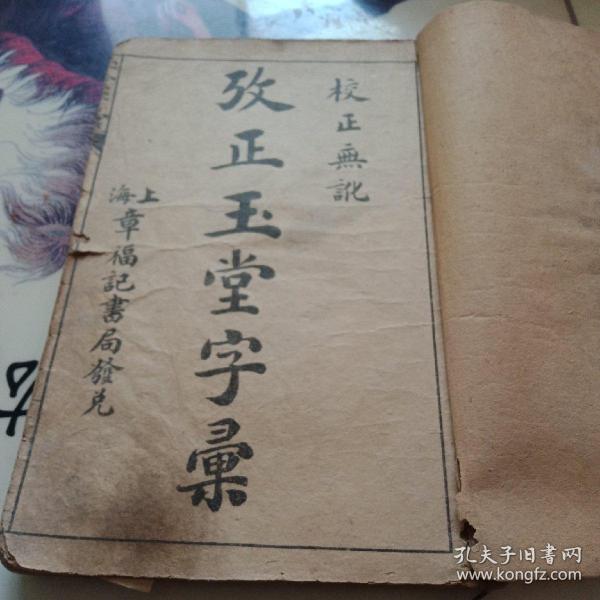 校正無訛
攷正玉堂字彙
上海章福記書局發兌
孔夫子旧書网
www.kongfz.com